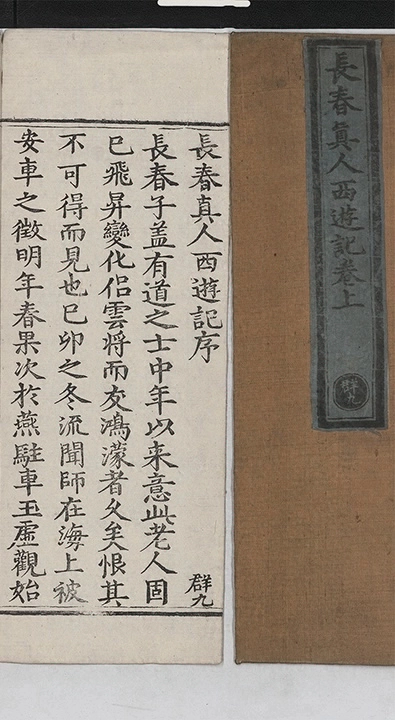 長春真人西遊記卷上
群九
長春真人西遊記序
群九
長春子盖有道之士中年以来意此老人固
已飛昇變化侣雲將而友鴻濛者久矣恨其
不可得而見也已卯之冬流聞師在海上被
安車之徵明年春果次於燕駐車玉虛觀始